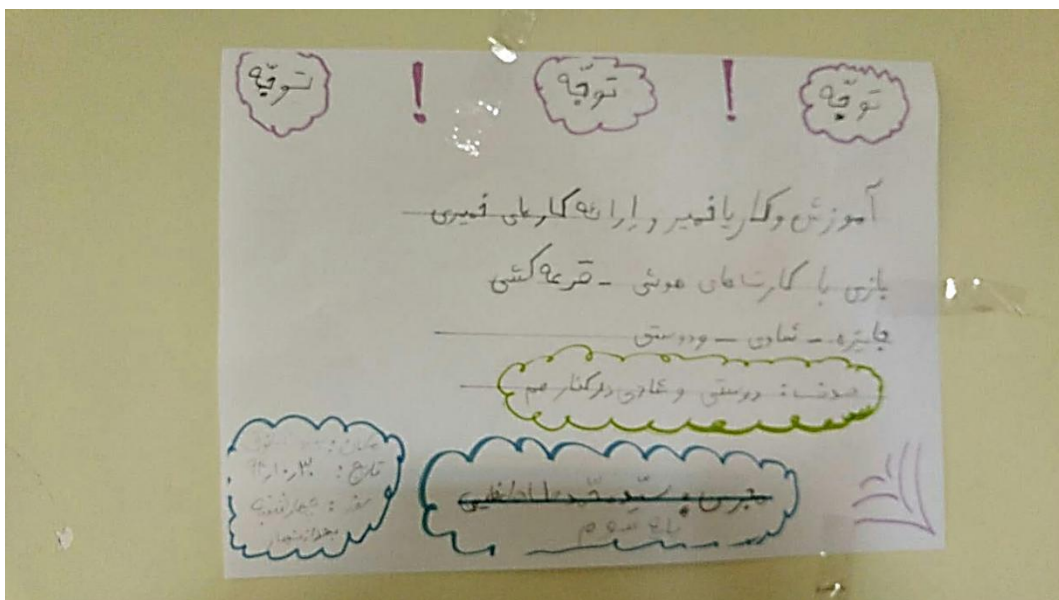 توجّه ! توجّه ! توجّه
آموزش و کار با خمیر و ارائه کارهای خمیری
بازی با کارت‌های هوشی - قرعه کشی
جایزه - شادی - و دوستی
هدف : دوستی و شادی در کنار هم
مجری : سیّد محمّد
پایه سوم
مکان :
تاریخ : ۹۴٫۱۰٫۳۰
چهارشنبه
بعد از نهار